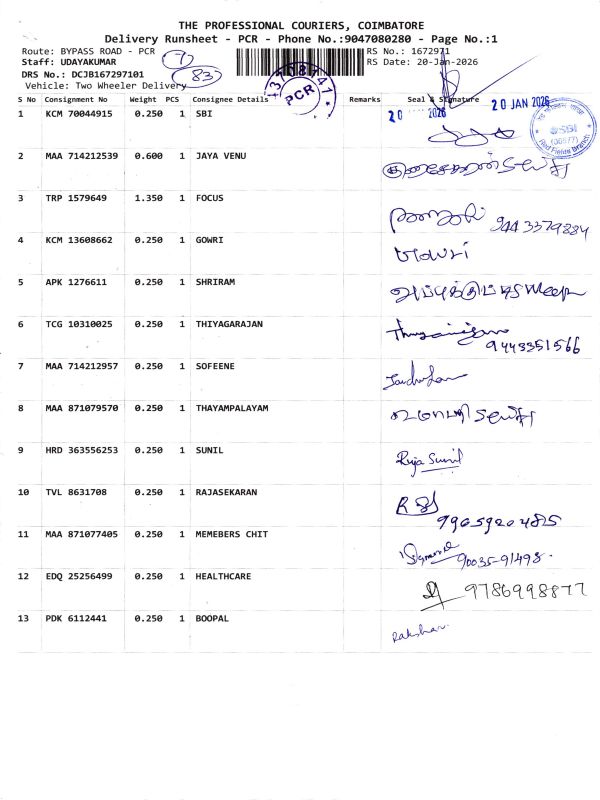 THE PROFESSIONAL COURIERS, COIMBATORE
Delivery Runsheet - PCR - Phone No.:9047080280 - Page No.:1
Route: BYPASS ROAD - PCR RS No.: 1672971
Staff: UDAYAKUMAR 7 RS Date: 20-Jan-2026
DRS No.: DCJB167297101 83
Vehicle: Two Wheeler Delivery PCR
S No Consignment No Weight PCS Consignee Details Remarks Seal & Signature
20 JAN 2026
1 KCM 70044915 0.250 1 SBI 20 2026
SBI
Red Fields Branch
2 MAA 714212539 0.600 1 JAYA VENU
3 TRP 1579649 1.350 1 FOCUS
9443379884
4 KCM 13608662 0.250 1 GOWRI
Gowri
5 APK 1276611 0.250 1 SHRIRAM
6 TCG 10310025 0.250 1 THIYAGARAJAN
9443351566
7 MAA 714212957 0.250 1 SOFEENE
8 MAA 871079570 0.250 1 THAYAMPALAYAM
9 HRD 363556253 0.250 1 SUNIL
Ruja Sunil
10 TVL 8631708 0.250 1 RAJASEKARAN
11 MAA 871077405 0.250 1 MEMEBERS CHIT
90035-91498
12 EDQ 25256499 0.250 1 HEALTHCARE
9786998877
13 PDK 6112441 0.250 1 BOOPAL
Rakshan